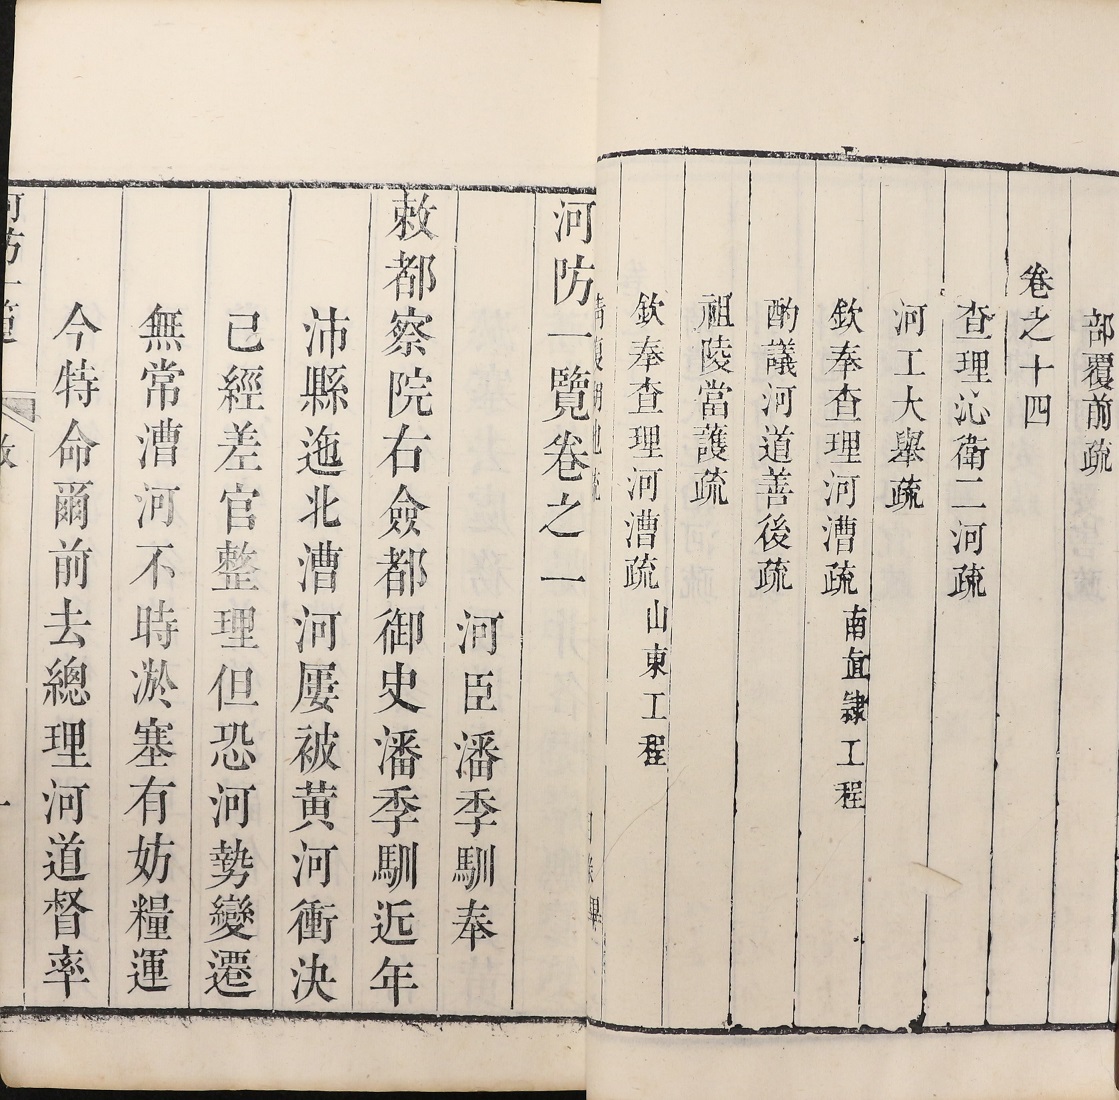 部覆前疏
卷之十四
查理沁衛二河疏
河工大舉疏
欽奉查理河漕疏 南直隸工程
酌議河道善後疏
祖陵當護疏
欽奉查理河漕疏 山東工程
河防一覽卷之一
河臣潘季馴奉
敕都察院右僉都御史潘季馴近年
沛縣迤北漕河屢被黃河衝決
已經差官整理但恐河勢變遷
無常漕河不時淤塞有妨糧運
今特命爾前去總理河道督率